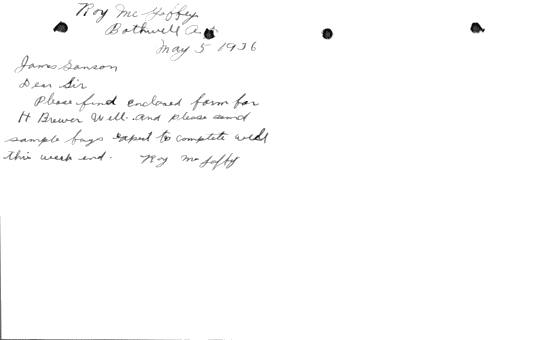 Roy Mc Gaffey
Bothwell
May 5 1936
James Sanson
Dear Sir
Please find enclosed form for
H Brewer Well. and please send
sample bags expect to complete well
this week end. Roy Mc Gaffey